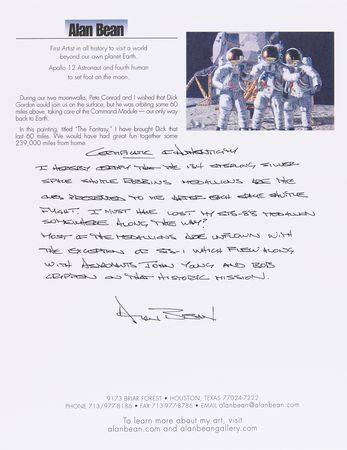 Alan Bean
First Artist in all history to visit a world
beyond our own planet Earth.
Apollo 12 Astronaut and fourth human
to set foot on the moon.
During our two moonwalks, Pete Conrad and I wished that Dick
Gordon could join us on the surface, but he was orbiting some 60
miles above, taking care of the Command Module — our only way
back to Earth.
In this painting, titled "The Fantasy," I have brought Dick that
last 60 miles. We would have had great fun together some
239,000 miles from home.
CERTIFICATE OF AUTHENTICITY
I HEREBY CERTIFY THAT THE 134 STERLING SILVER
SPACE SHUTTLE ROBBINS MEDALLIONS ARE THE
ONES PRESENTED TO ME AFTER EACH SPACE SHUTTLE
FLIGHT. I MUST HAVE LOST MY STS-88 MEDALLION
SOMEWHERE ALONG THE WAY?
MOST OF THE MEDALLIONS ARE UNFLOWN WITH
THE EXCEPTION OF STS-1 WHICH FLEW ALONG
WITH ASTRONAUTS JOHN YOUNG AND BOB
CRIPPEN ON THAT HISTORIC MISSION.
ALAN BEAN
9173 BRIAR FOREST • HOUSTON, TEXAS 77024-7222
PHONE 713/977-8186 • FAX 713-977-8786 • EMAIL alanbean@alanbean.com
To learn more about my art, visit
alanbean.com and alanbeangallery.com